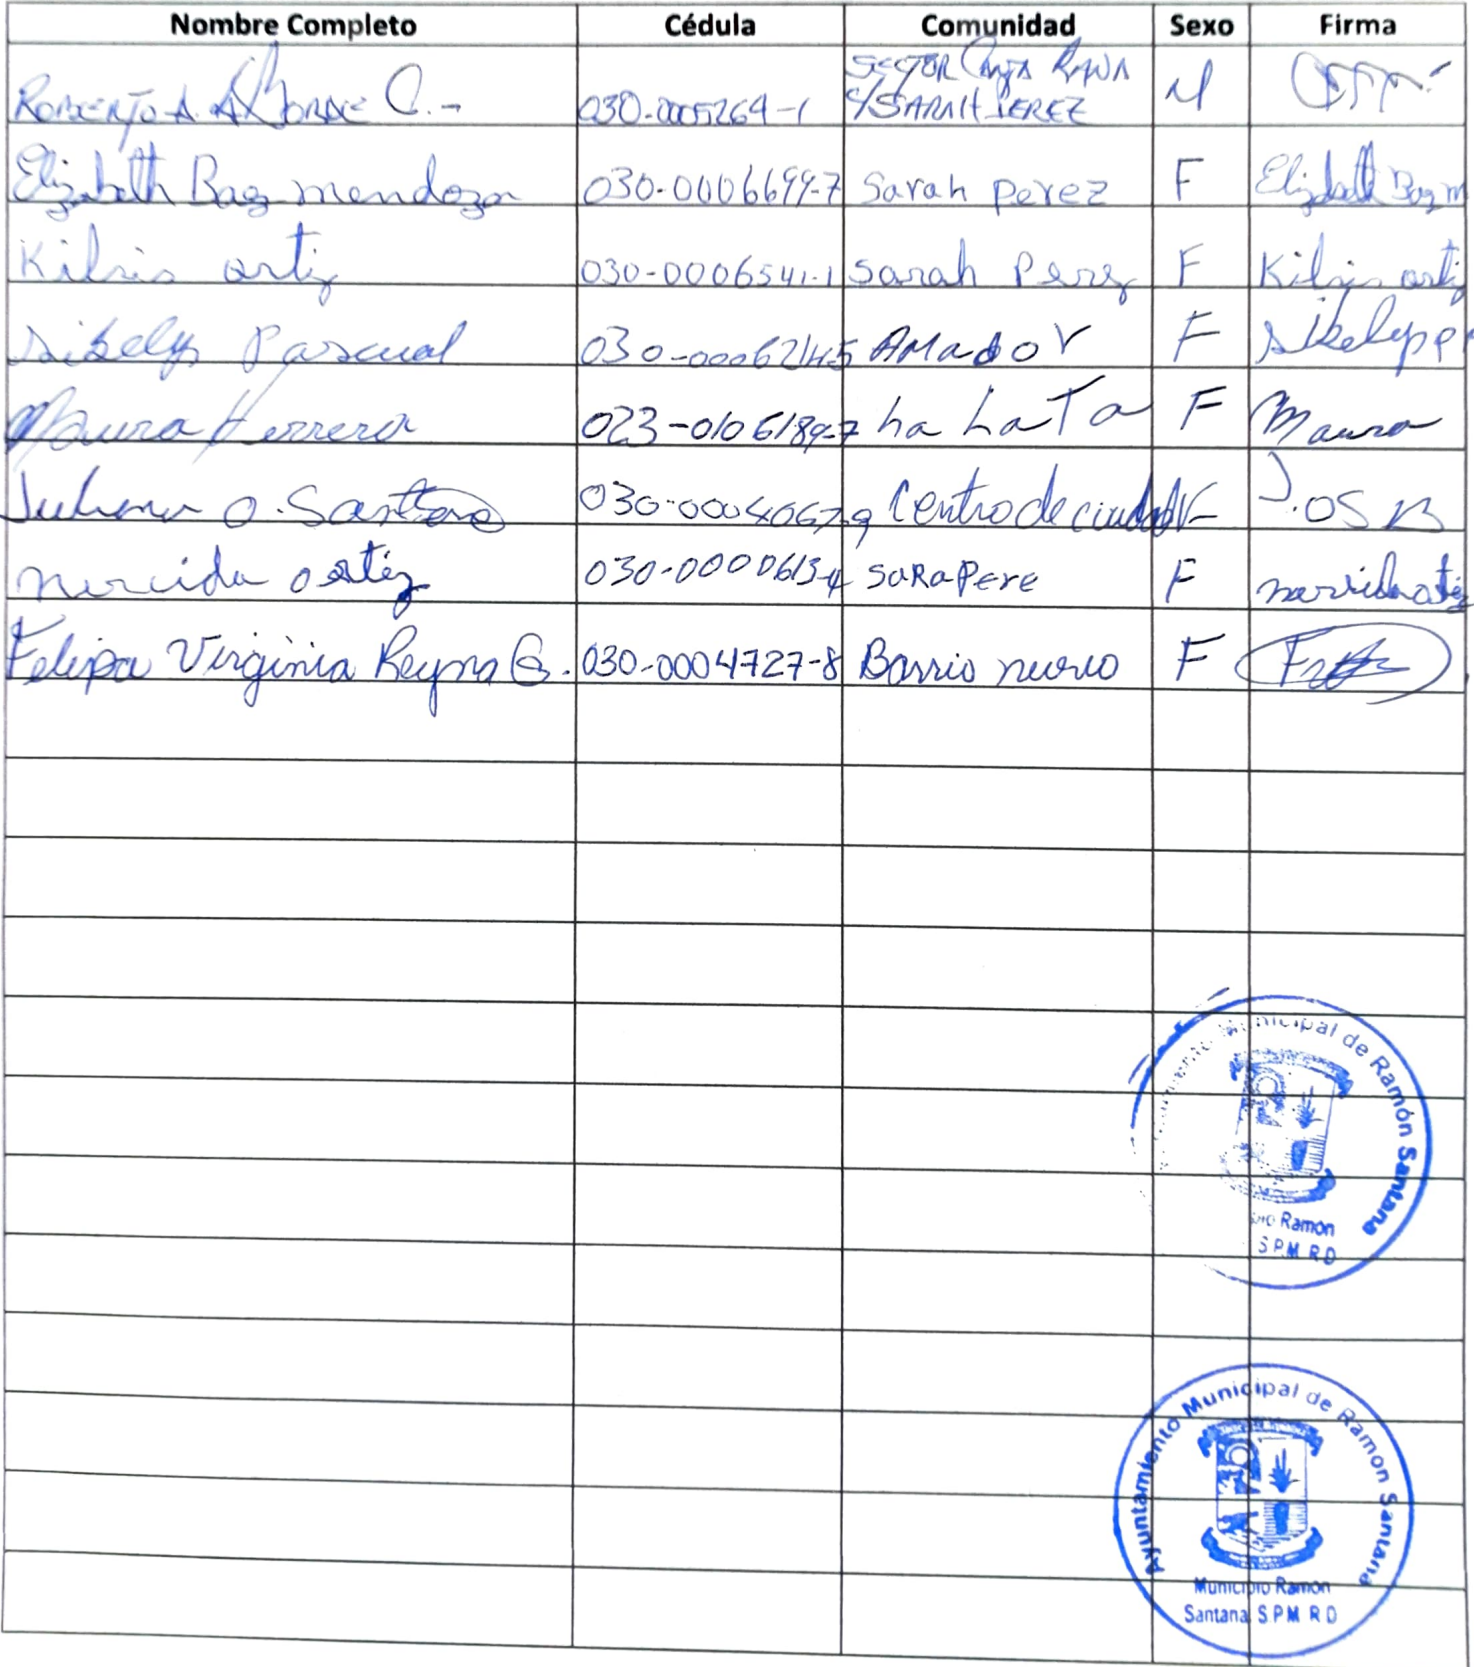 Nombre Completo Cédula Comunidad Sexo Firma
SECTOR Canta RANA
ROBERTO A. 030-0005264-1 C/SARAH PEREZ M
Elizabeth Baez mendoza 030-0006699-7 Sarah perez F Elizabeth Baez m
Kilsis ortiz 030-0006541-1 Sarah Perez F Kilsis ortiz
Sikelys Pascual 030-00062145 AMadoR F
Maura Herrera 023-0106189-7 La LaTa F Maura
Juliana O. Santana 030-0004067-9 Centro de ciudad F J.OS
nercida ortiz 030-0000613-4 SaRaPere F
Felipa Virginia Reyna G. 030-0004727-8 Barrio nuevo F
Ayuntamiento Municipal de Ramón Santana
Ramón
SPM RD
Ayuntamiento Municipal de Ramon Santana
Municipio Ramon
Santana SPM RD